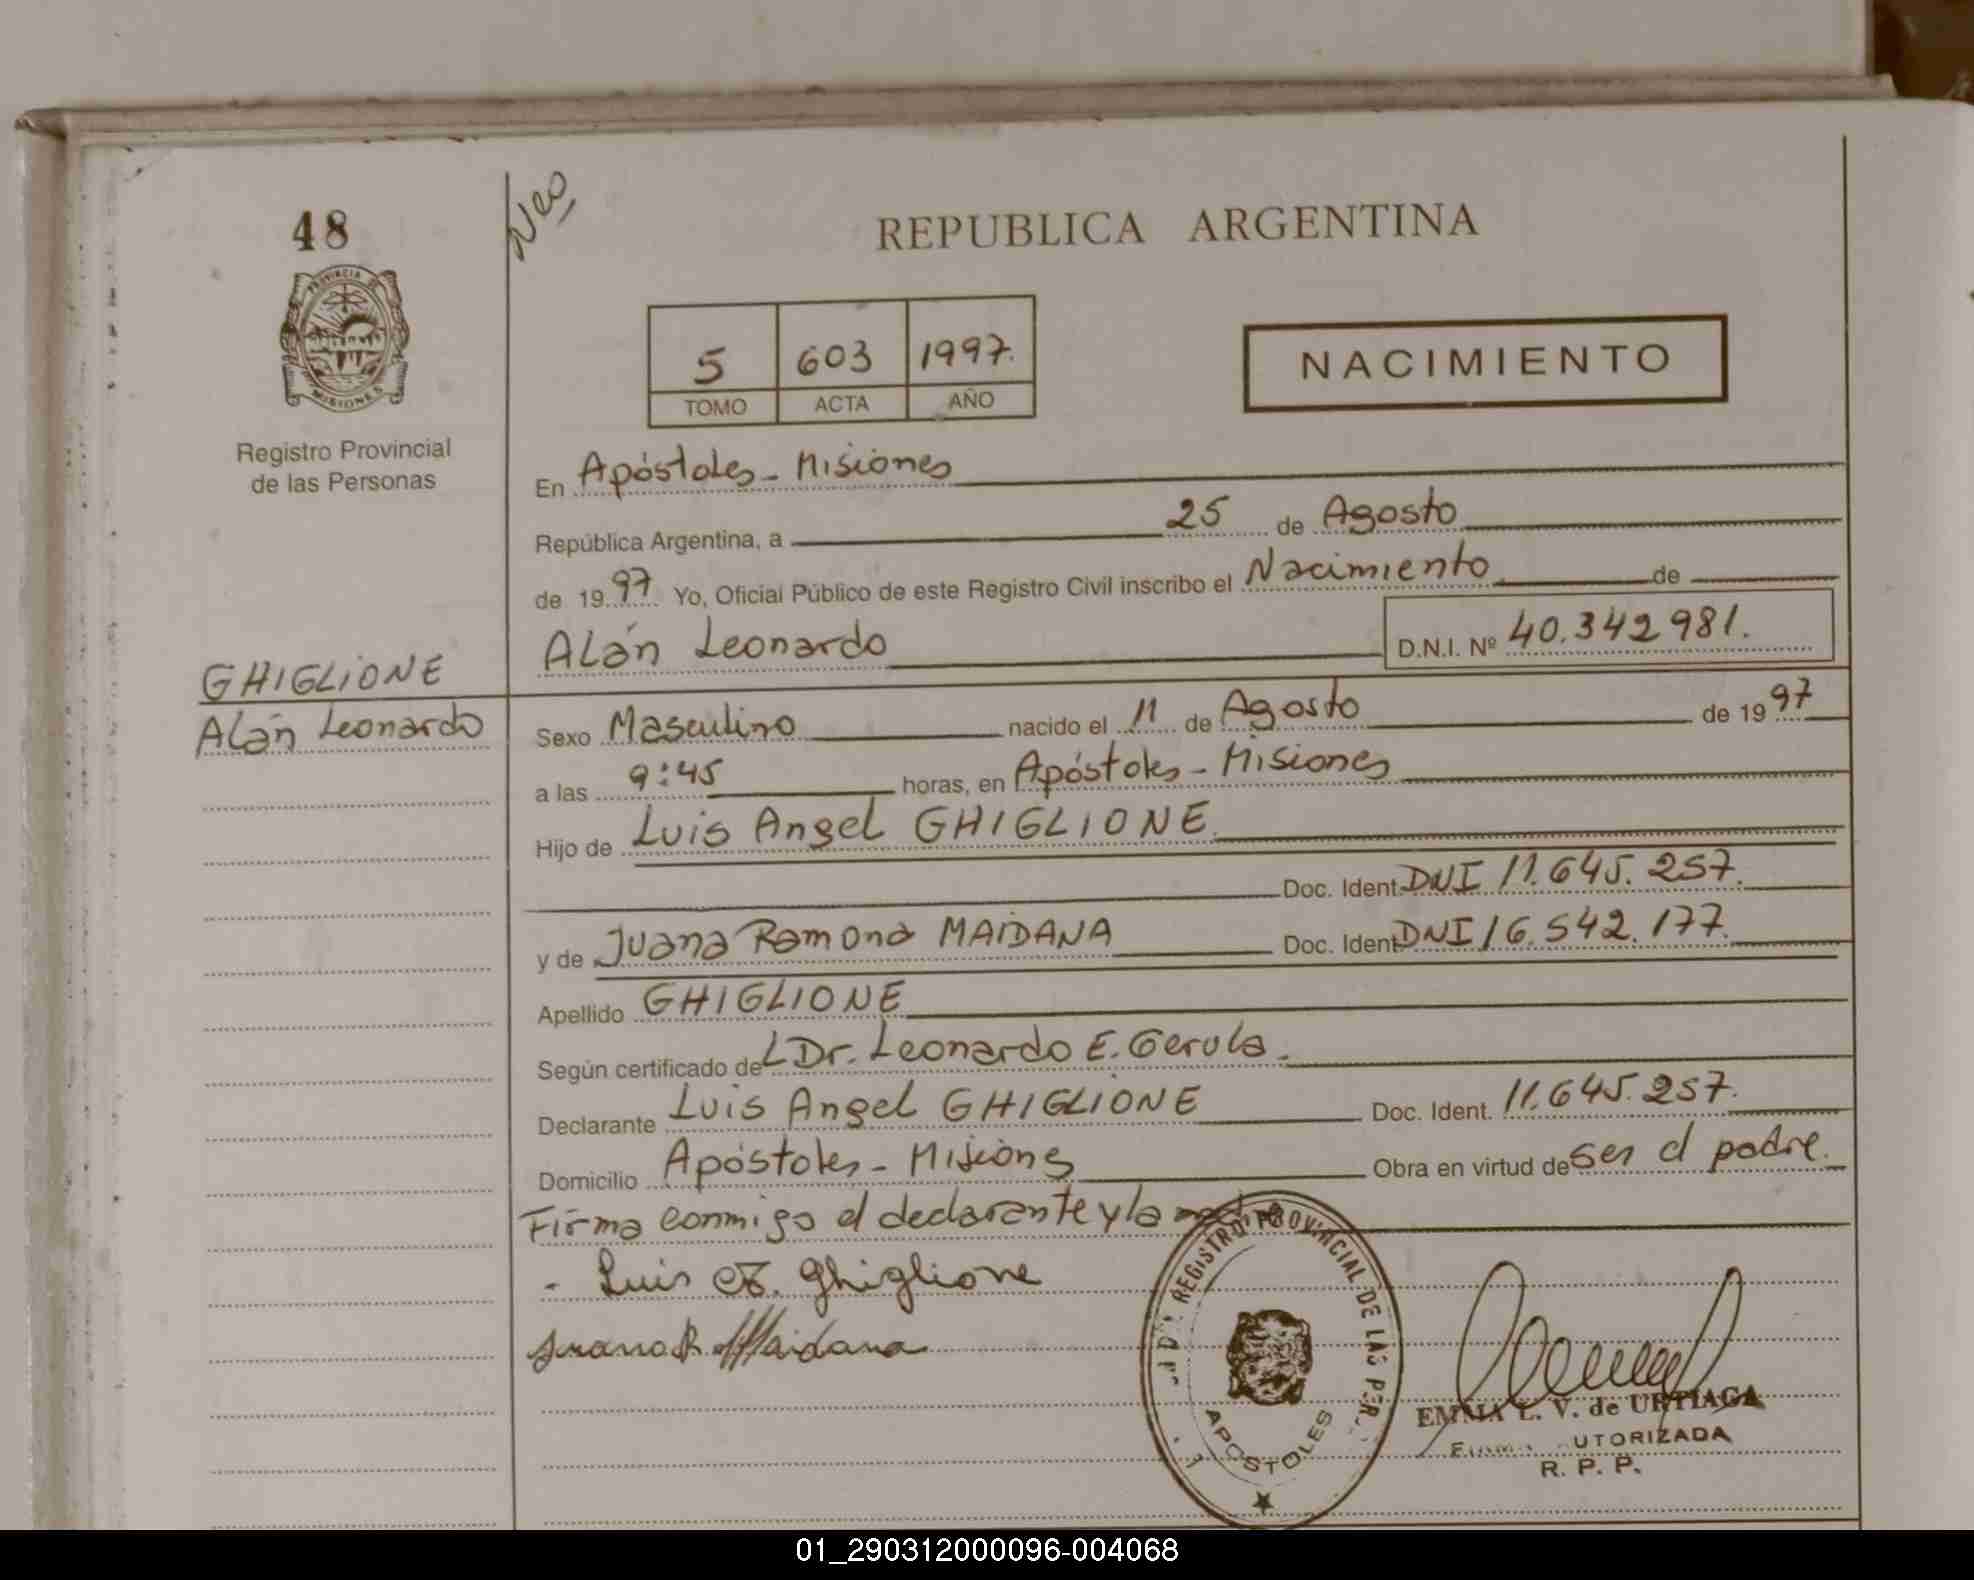 48
Neo
REPUBLICA ARGENTINA
PROVINCIA DE
MISIONES
Registro Provincial
de las Personas
5 603 1997.
TOMO ACTA AÑO
NACIMIENTO
En Apóstoles - Misiones
República Argentina, a 25 de Agosto
de 1997 Yo, Oficial Público de este Registro Civil inscribo el Nacimiento de
Alán Leonardo D.N.I. Nº 40.342981.
GHIGLIONE
Alán Leonardo
Sexo Masculino nacido el 11 de Agosto de 1997
a las 9:45 horas, en Apóstoles - Misiones
Hijo de Luis Angel GHIGLIONE
Doc. Ident. DNI 11.645.257.
y de Juana Ramona MAIDANA Doc. Ident. DNI 16.542.177.
Apellido GHIGLIONE
Según certificado del Dr. Leonardo E. Gerula.
Declarante Luis Angel GHIGLIONE Doc. Ident. 11.645.257.
Domicilio Apóstoles - Misiones Obra en virtud de ser el padre.
Firma conmigo el declarante y la madre
- Luis A. Ghiglione
Juana R Maidana
REGISTRO PROVINCIAL DE LAS PER
APOSTOLES
EMMA L. V. de URTIAGA
FIRMA AUTORIZADA
R. P. P.
01_290312000096-004068